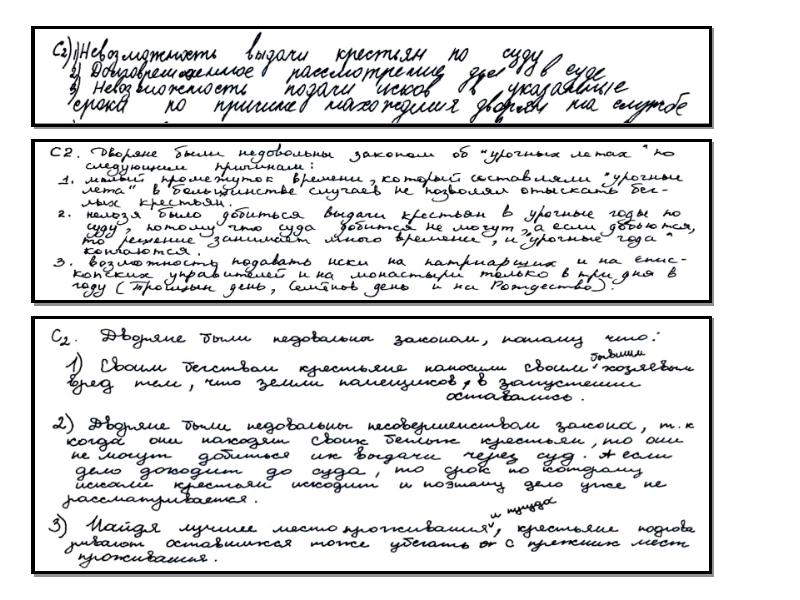 С2) 1) Невозможность выдачи крестьян по суду
2) Долговременное рассмотрение дел в суде
3) Невозможность подачи исков в указанные
срока по причине нахождения дворян на службе
С2. Дворяне были недовольны законом об "урочных летах" по
следующим причинам:
1. малый промежуток времени, который составляли "урочные
лета" в большинстве случаев не позволял отыскать бег-
лых крестьян.
2. нельзя было добиться выдачи крестьян в урочные годы по
суду, потому что суда добится не могут, а если добьются,
то решение занимает много времени, и "урочные года"
кончаются.
3. возможность подавать иски на патриарших и на епис-
копских управителей и на монастыри только в три дня в
году (Троицын день, Семёнов день и на Рождество).
С2. Дворяне были недовольны законом, потому что:
1) Своим бегством крестьяне наносили своим бывшим хозяевам
вред тем, что земли помещиков, в запустении
оставались.
2) Дворяне были недовольны несовершенством закона, т.к
когда они находят своих беглых крестьян, то они
не могут добиться их выдачи через суд. А если
дело доходит до суда, то срок по которому
искали крестьян исходит и поэтому дело уже не
рассматривается.
3) Найдя лучшее место проживания, крестьяне подгова
ривают оставшихся тоже убегать с прежних мест
проживания.